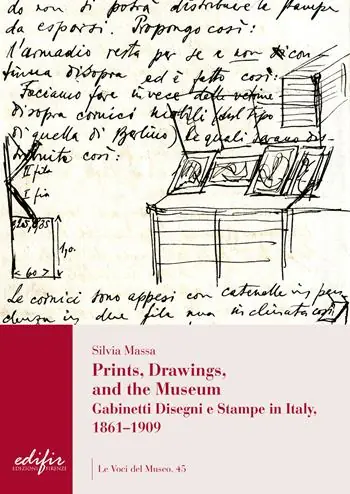 do non si potrà distribuire le stampe
da esporsi. Propongo così:
l'armadio resta per se e non si con
tinua disopra ed è fatto così:
Facciamo fare invece delle vetrine
disopra cornici mobili (sul tipo
di quella di Berlino) le quali saranno dis-
tribuite così:
II fila
I fila
0,35
1,0.
< 60 >
Le cornici sono appesi con catenelle in pen
denza in due file una inclinata così:
Silvia Massa
Prints, Drawings,
and the Museum
Gabinetti Disegni e Stampe in Italy,
1861–1909
edifir
EDIZIONI FIRENZE
Le Voci del Museo. 45